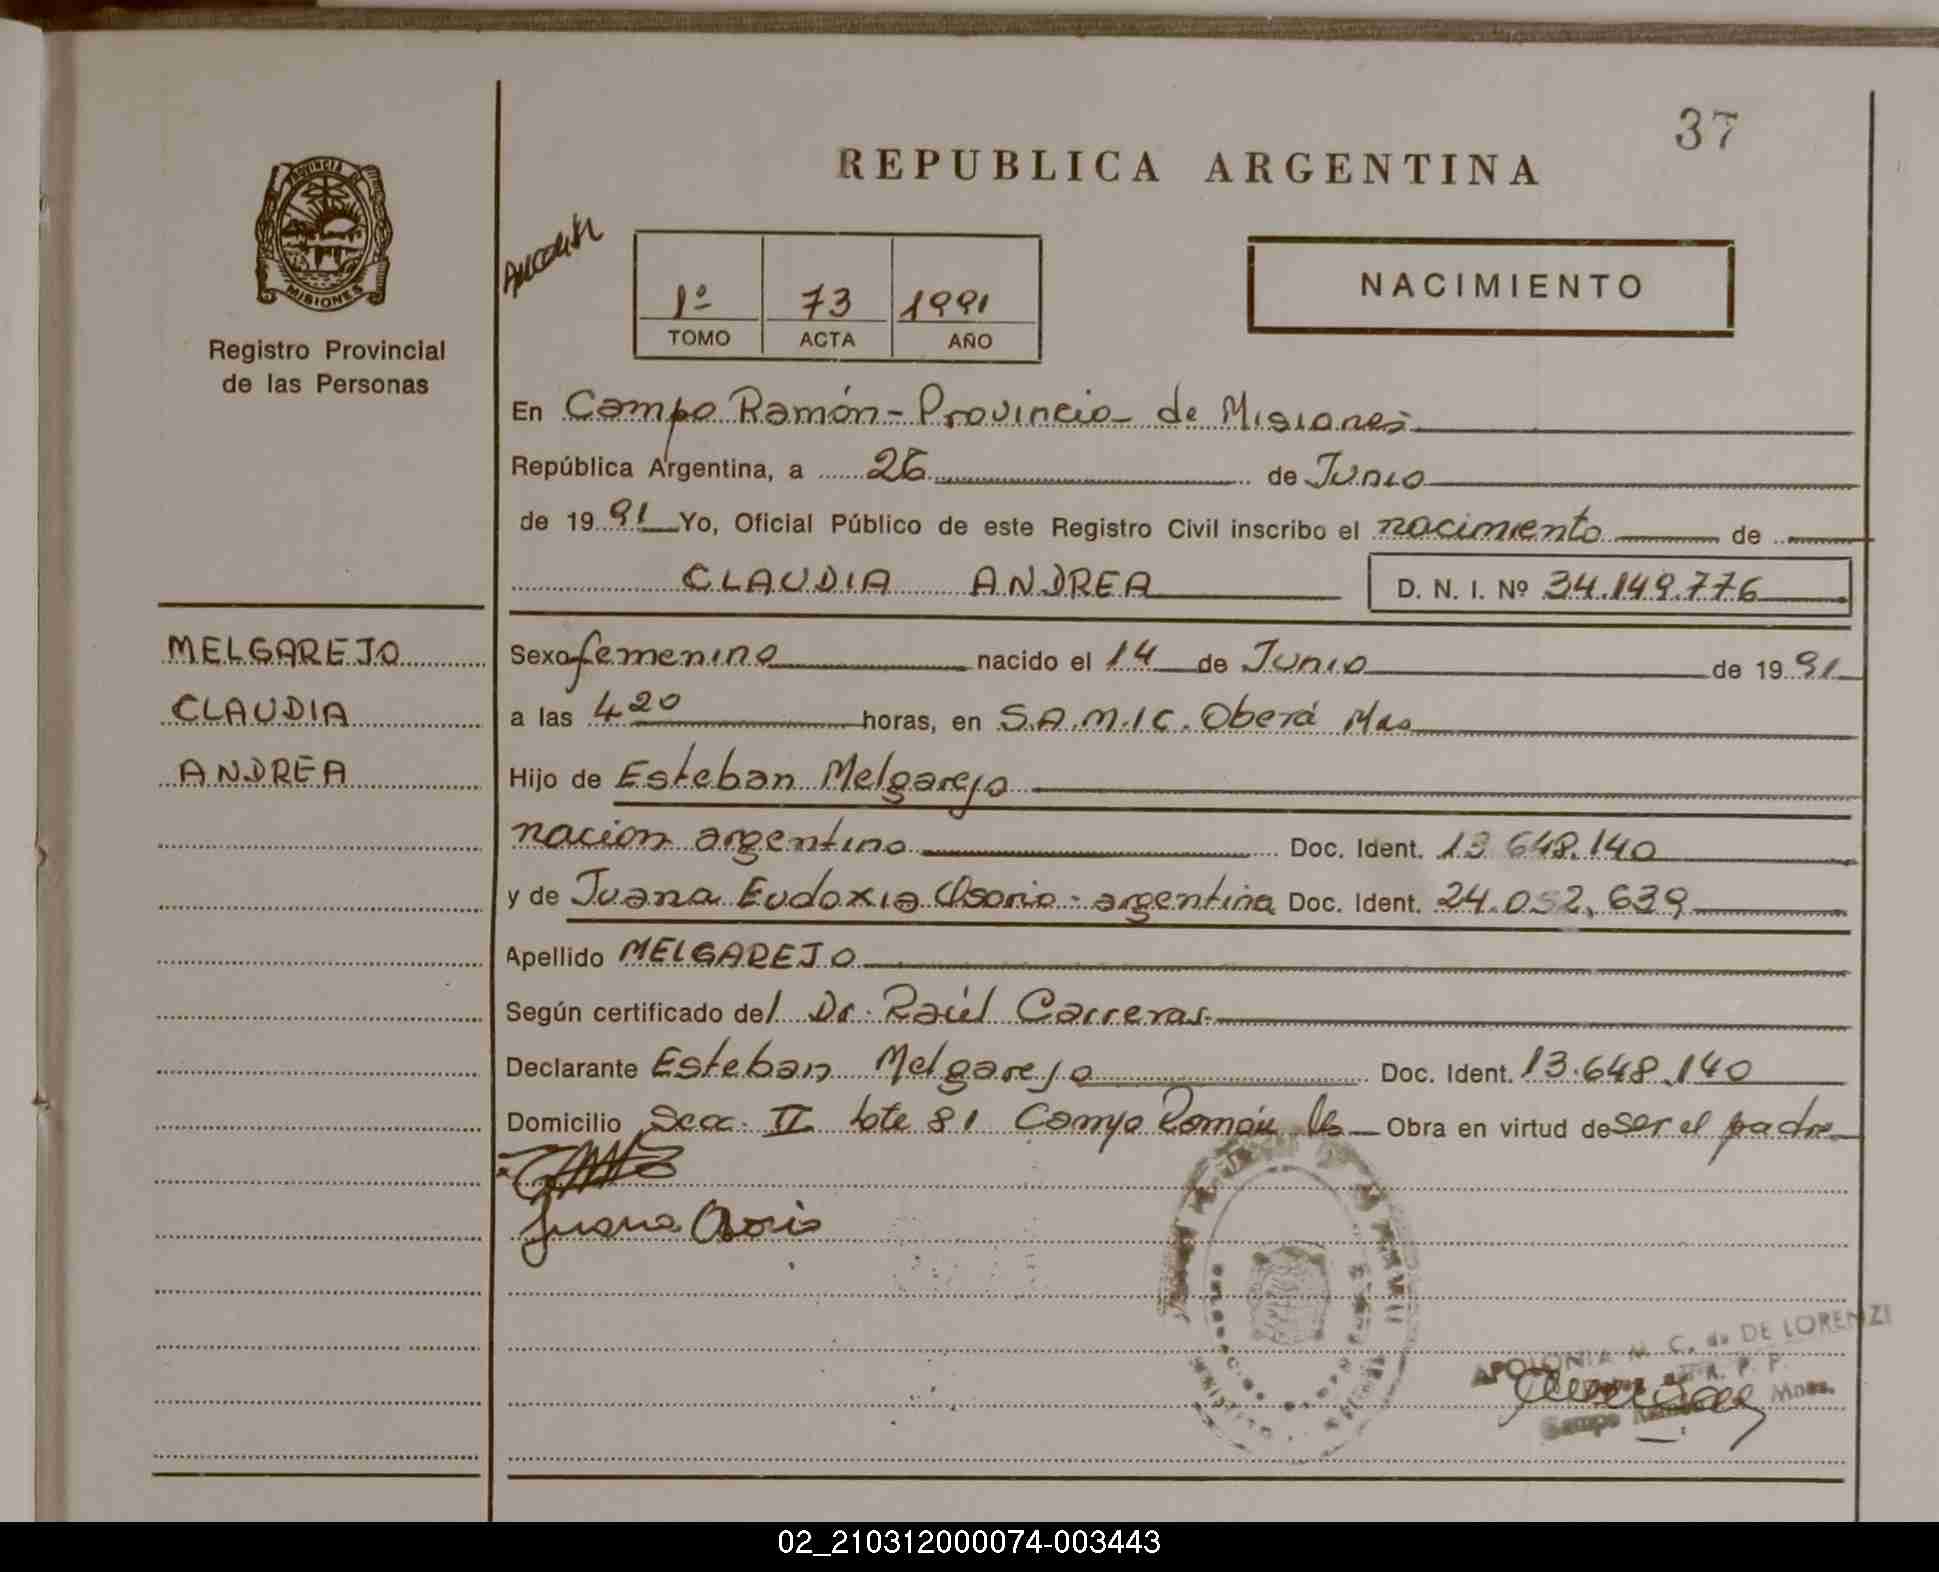 37
REPUBLICA ARGENTINA
PROVINCIA DE
MISIONES
Registro Provincial
de las Personas
1º 73 1991
TOMO ACTA AÑO
NACIMIENTO
En Campo Ramón - Provincia de Misiones
República Argentina, a 26 de Junio
de 1991 Yo, Oficial Público de este Registro Civil inscribo el nacimiento de
CLAUDIA ANDREA D. N. I. Nº 34.149.776
MELGAREJO
CLAUDIA
ANDREA
Sexo femenino nacido el 14 de Junio de 1991
a las 4 20 horas, en S.A.M.I.C. Oberá Mnes
Hijo de Esteban Melgarejo
nación argentino Doc. Ident. 13.648.140
y de Juana Eudoxia Osorio - argentina Doc. Ident. 24.052.639
Apellido MELGAREJO
Según certificado del Dr. Raúl Carreras
Declarante Esteban Melgarejo Doc. Ident. 13.648.140
Domicilio Secc. II lote 81 Campo Ramón Obra en virtud de ser el padre
Juana Osorio
APOLONIA M. C. de DE LORENZI
R. P. P.
Campo Mnes.
02_210312000074-003443